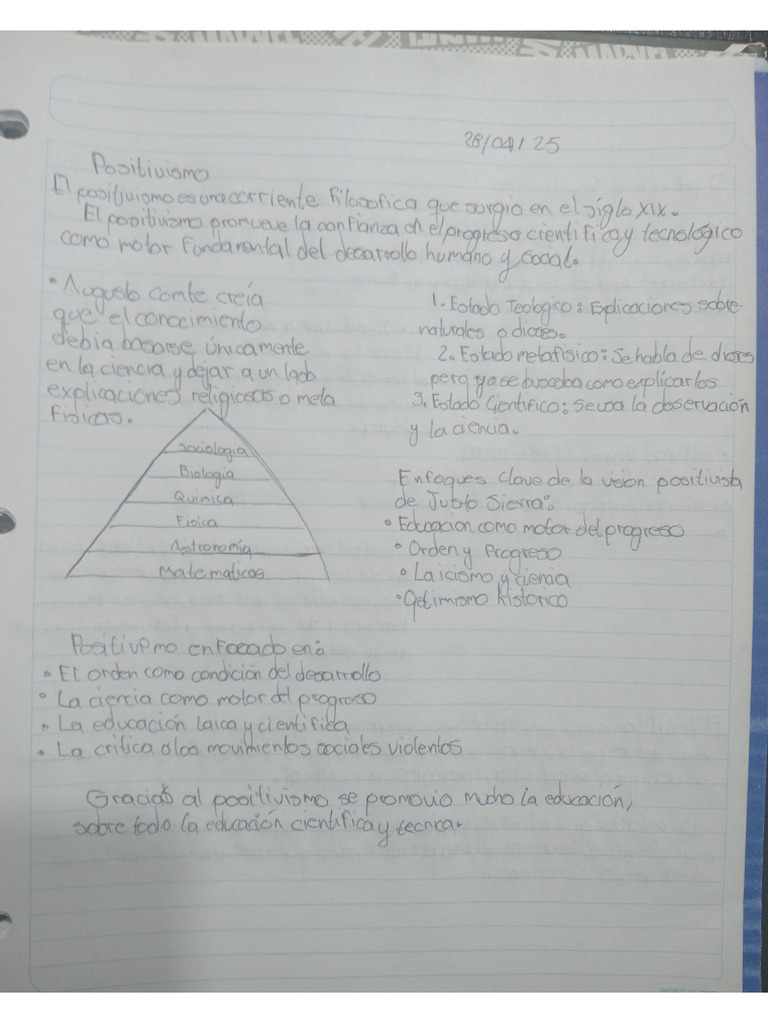 28/04/25
Positivismo
El positivismo es una corriente filosofica que surgio en el siglo XIX.
El positivismo promueve la confianza en el progreso cientifico y tecnológico
como motor fundamental del desarrollo humano y social.
• Augusto comte creía
que el conocimiento
debia basarse únicamente
en la ciencia y dejar a un lado
explicaciones religiosas o meta
fisicas.
Sociologia
Biologia
Quimica
Fisica
Astronomía
Matematicas
1. Estado Teologico: Explicaciones sobre
naturales o dioses.
2. Estado metafisico: Se habla de dioses
pero ya se buscaba como explicarlos
3. Estado Cientifico: Se usa la observación
y la ciencia.
Enfoques clave de la visión positivista
de Justo Sierra:
• Educacion como motor del progreso
• Orden y Progreso
• Laicismo y ciencia
• Optimismo historico
Positivismo enfocado en:
• El orden como condición del desarrollo
• La ciencia como motor del progreso
• La educación laica y cientifica
• La critica a los movimientos sociales violentos
Gracias al positivismo se promovio mucho la educación,
sobre todo la educación cientifica y tecnica.